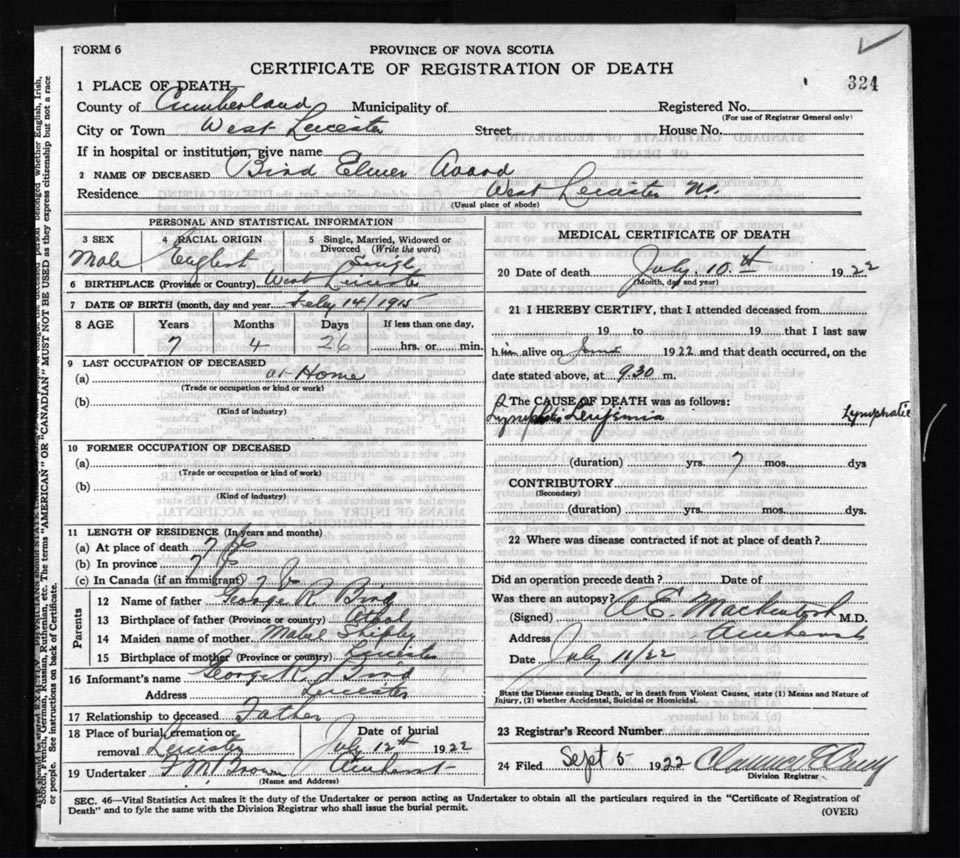 FORM 6
PROVINCE OF NOVA SCOTIA
CERTIFICATE OF REGISTRATION OF DEATH
324
1 PLACE OF DEATH
County of Cumberland Municipality of Registered No.
(For use of Registrar General only)
City or Town West Leicester Street House No.
If in hospital or institution, give name
2 NAME OF DECEASED Bird Elmer Avard
Residence West Leicester N.S.
(Usual place of abode)
PERSONAL AND STATISTICAL INFORMATION
3 SEX Male
4 RACIAL ORIGIN English
5 Single, Married, Widowed or Divorced (Write the word) Single
6 BIRTHPLACE (Province or Country) West Leicester
7 DATE OF BIRTH (month, day and year) 14/1915
8 AGE Years Months Days If less than one day,
7 4 26 hrs. or min.
9 LAST OCCUPATION OF DECEASED
(a) at Home
(Trade or occupation or kind or work)
(b)
(Kind of industry)
10 FORMER OCCUPATION OF DECEASED
(a)
(Trade or occupation or kind of work)
(b)
(Kind of industry)
11 LENGTH OF RESIDENCE (In years and months)
(a) At place of death 7
(b) In province 7
(c) In Canada (if an immigrant) 7
Parents
12 Name of father George R. Bird
13 Birthplace of father (Province or country)
14 Maiden name of mother Mabel Shipley
15 Birthplace of mother (Province or country) Leicester
16 Informant's name George R. Bird
Address Leicester
17 Relationship to deceased Father
18 Place of burial, cremation or removal Leicester
Date of burial July 12th 1922
19 Undertaker Brown Amherst
(Name and Address)
MEDICAL CERTIFICATE OF DEATH
20 Date of death July 10th 1922
(Month, day and year)
21 I HEREBY CERTIFY, that I attended deceased from
19 to 19 that I last saw
him alive on June 1922 and that death occurred, on the
date stated above, at 9.30 m.
The CAUSE OF DEATH was as follows:
Leukemia Lymphatic
(duration) yrs. 7 mos. dys
CONTRIBUTORY
(Secondary)
(duration) yrs. mos. dys.
22 Where was disease contracted if not at place of death?
Did an operation precede death? Date of
Was there an autopsy?
(Signed) A. E. Mackintosh M.D.
Address Amherst
Date July 11/22
State the Disease causing Death, or in death from Violent Causes, state (1) Means and Nature of
Injury, (2) whether Accidental, Suicidal or Homicidal.
23 Registrar's Record Number
24 Filed Sept 5 1922 Clarence
Division Registrar
SEC. 46—Vital Statistics Act makes it the duty of the Undertaker or person acting as Undertaker to obtain all the particulars required in the "Certificate of Registration of
Death" and to fyle the same with the Division Registrar who shall issue the burial permit.
(OVER)
French, German, Russian, Ruthenian, etc. The terms "AMERICAN" OR "CANADIAN" MUST NOT BE USED as they express citizenship but not a race
or people. See instructions on back of Certificate.